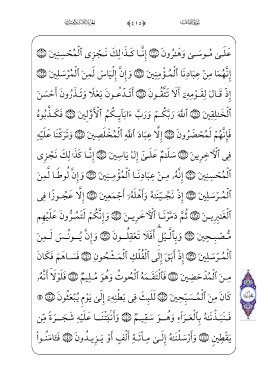 عَلَىٰ مُوسَىٰ وَهَٰرُونَ ۝ إِنَّا كَذَٰلِكَ نَجْزِى ٱلْمُحْسِنِينَ ۝
إِنَّهُمَا مِنْ عِبَادِنَا ٱلْمُؤْمِنِينَ ۝ وَإِنَّ إِلْيَاسَ لَمِنَ ٱلْمُرْسَلِينَ ۝
إِذْ قَالَ لِقَوْمِهِۦٓ أَلَا تَتَّقُونَ ۝ أَتَدْعُونَ بَعْلًا وَتَذَرُونَ أَحْسَنَ
ٱلْخَٰلِقِينَ ۝ ٱللَّهَ رَبَّكُمْ وَرَبَّ ءَابَآئِكُمُ ٱلْأَوَّلِينَ ۝ فَكَذَّبُوهُ
فَإِنَّهُمْ لَمُحْضَرُونَ ۝ إِلَّا عِبَادَ ٱللَّهِ ٱلْمُخْلَصِينَ ۝ وَتَرَكْنَا عَلَيْهِ
فِى ٱلْءَاخِرِينَ ۝ سَلَٰمٌ عَلَىٰٓ إِلْ يَاسِينَ ۝ إِنَّا كَذَٰلِكَ نَجْزِى
ٱلْمُحْسِنِينَ ۝ إِنَّهُۥ مِنْ عِبَادِنَا ٱلْمُؤْمِنِينَ ۝ وَإِنَّ لُوطًا لَّمِنَ
ٱلْمُرْسَلِينَ ۝ إِذْ نَجَّيْنَٰهُ وَأَهْلَهُۥٓ أَجْمَعِينَ ۝ إِلَّا عَجُوزًا فِى
ٱلْغَٰبِرِينَ ۝ ثُمَّ دَمَّرْنَا ٱلْءَاخَرِينَ ۝ وَإِنَّكُمْ لَتَمُرُّونَ عَلَيْهِم
مُّصْبِحِينَ ۝ وَبِٱلَّيْلِ أَفَلَا تَعْقِلُونَ ۝ وَإِنَّ يُونُسَ لَمِنَ
ٱلْمُرْسَلِينَ ۝ إِذْ أَبَقَ إِلَى ٱلْفُلْكِ ٱلْمَشْحُونِ ۝ فَسَاهَمَ فَكَانَ
مِنَ ٱلْمُدْحَضِينَ ۝ فَٱلْتَقَمَهُ ٱلْحُوتُ وَهُوَ مُلِيمٌ ۝ فَلَوْلَآ أَنَّهُۥ
كَانَ مِنَ ٱلْمُسَبِّحِينَ ۝ لَلَبِثَ فِى بَطْنِهِۦٓ إِلَىٰ يَوْمِ يُبْعَثُونَ ۝
فَنَبَذْنَٰهُ بِٱلْعَرَآءِ وَهُوَ سَقِيمٌ ۝ وَأَنۢبَتْنَا عَلَيْهِ شَجَرَةً مِّن
يَقْطِينٍ ۝ وَأَرْسَلْنَٰهُ إِلَىٰ مِا۟ئَةِ أَلْفٍ أَوْ يَزِيدُونَ ۝ فَـَٔامَنُوا۟